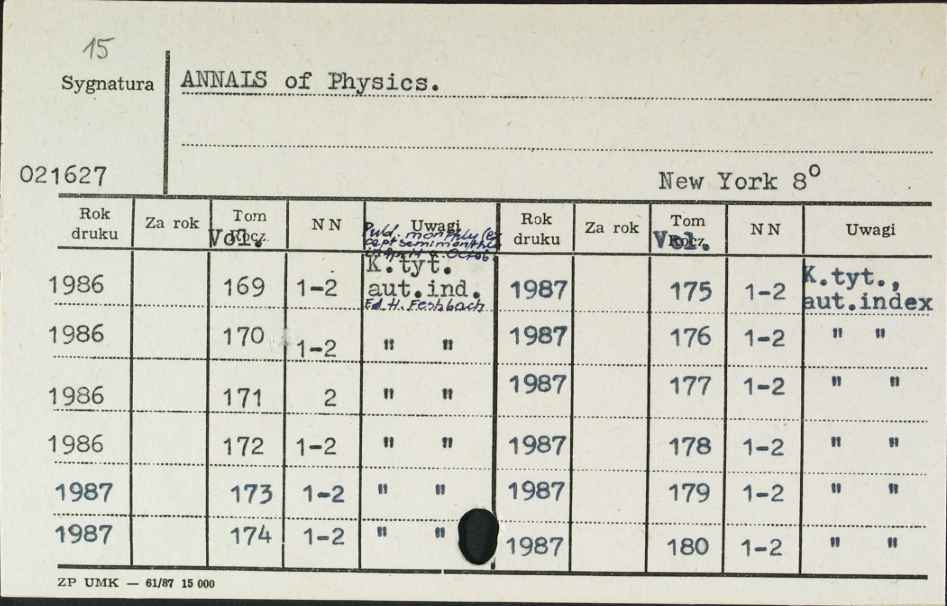 15
Sygnatura ANNALS of Physics.
021627
New York 8°
Rok druku Za rok Tom Rocz. Vol. NN Uwagi Rok druku Za rok Tom Rocz. Vol. NN Uwagi
Publ. monthly (ex
cept semimonthly
in April & Octob.
1986 169 1-2 K.tyt. aut.ind. 1987 175 1-2 K.tyt., aut.index
Ed. H. Feshbach
1986 170 1-2 " " 1987 176 1-2 " "
1986 171 2 " " 1987 177 1-2 " "
1986 172 1-2 " " 1987 178 1-2 " "
1987 173 1-2 " " 1987 179 1-2 " "
1987 174 1-2 " " 1987 180 1-2 " "
ZP UMK — 61/87 15 000